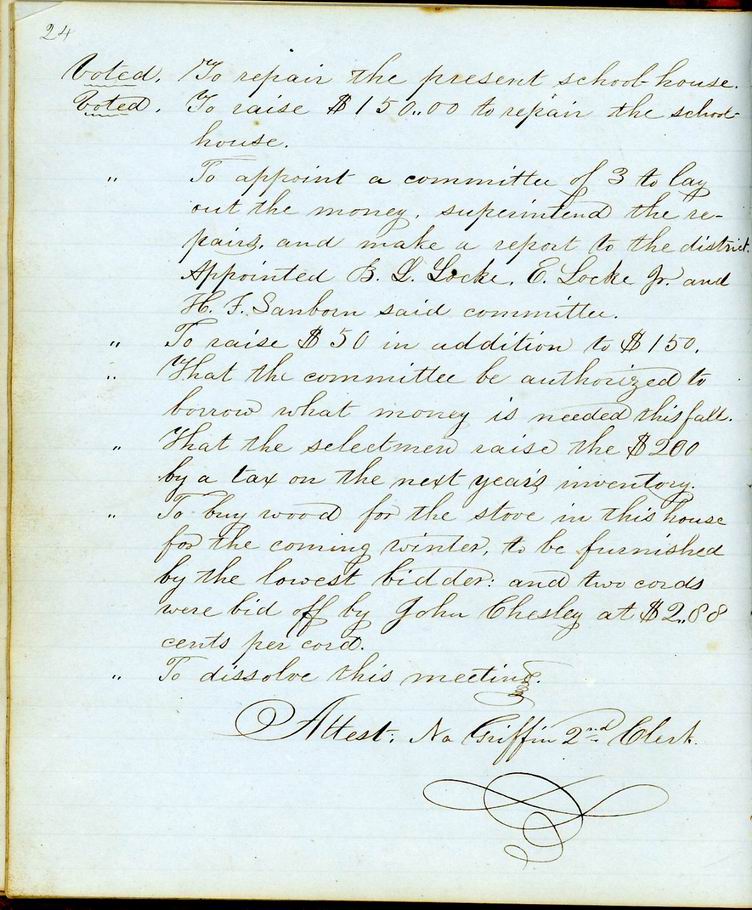 24
Voted. To repair the present school-house.
Voted. To raise $150..00 to repair the school-
house.
" To appoint a committee of 3 to lay
out the money, superintend the re-
pairs, and make a report to the district.
Appointed B. L. Locke, E. Locke Jr. and
H. F. Sanborn said committee.
" To raise $50 in addition to $150.
" That the committee be authorized to
borrow what money is needed this fall.
" That the selectmen raise the $200
by a tax on the next year's inventory.
" To buy wood for the stove in this house
for the coming winter, to be furnished
by the lowest bidder: and two cords
were bid off by John Chesley at $2..88
cents per cord.
" To dissolve this meeting.
Attest. Griffin 2nd Clerk.